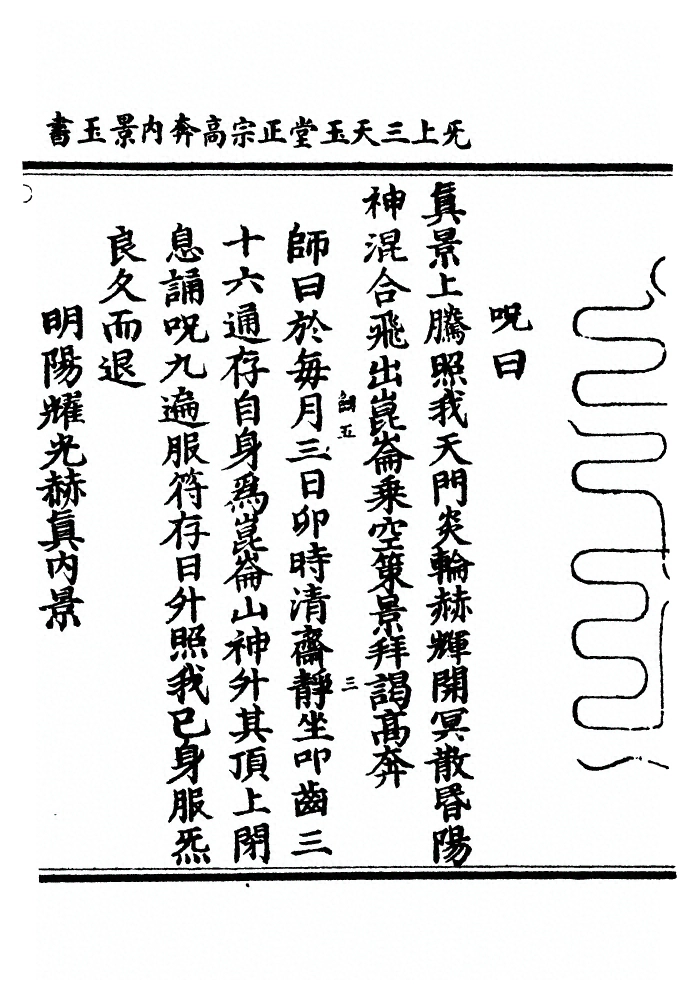 旡上三天玉堂正宗高奔内景玉書
呪曰
眞景上騰照我天門炎輪赫輝開冥散昏陽
神混合飛出崑崙乗空策景拜謁高奔
五 三
師曰於每月三日卯時清齋靜坐叩齒三
十六通存自身爲崑崙山神外其頂上閉
息誦呪九遍服符存日外照我已身服炁
良久而退
明陽耀光赫眞内景